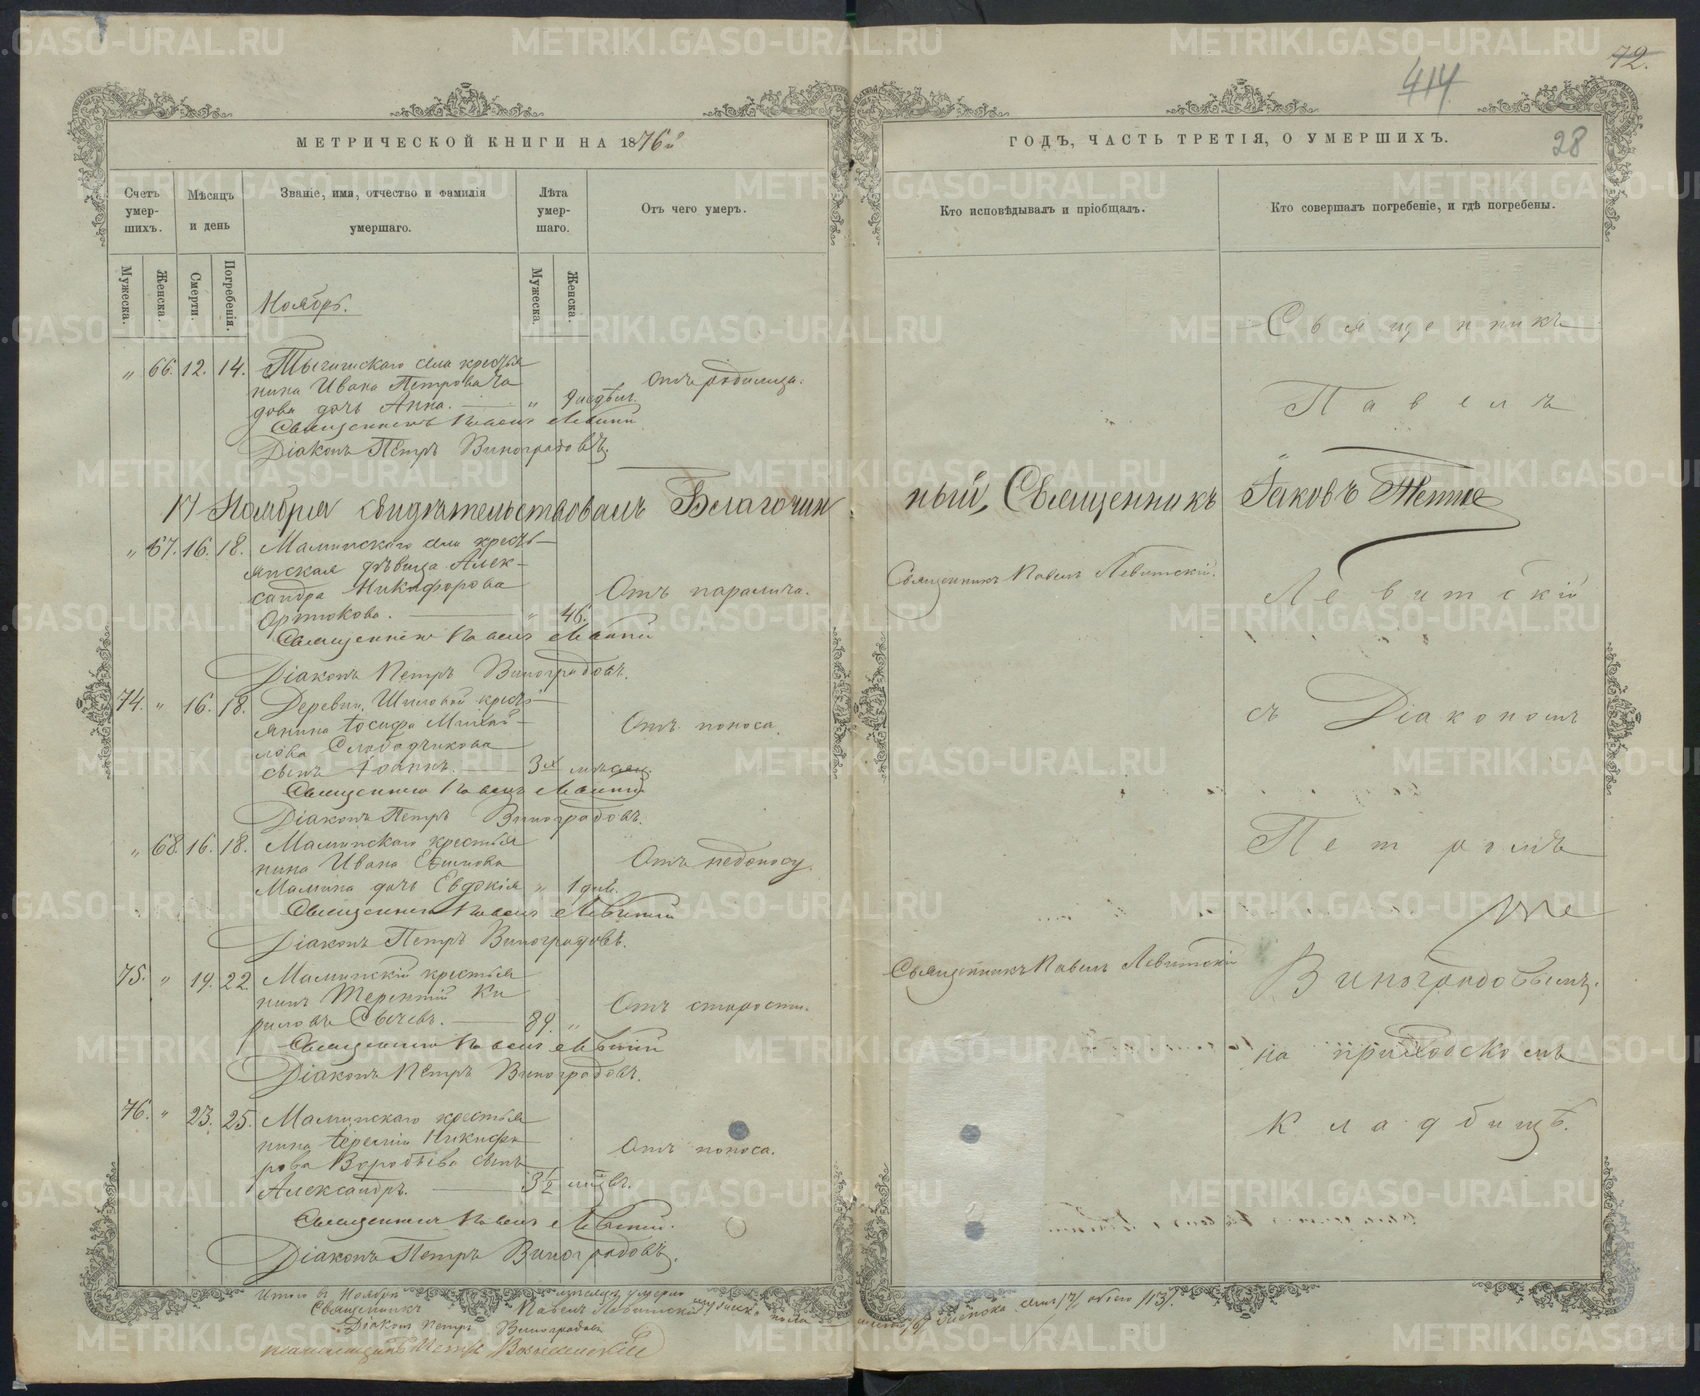 72.
414
28
МЕТРИЧЕСКОЙ КНИГИ НА 1876й
ГОДЪ, ЧАСТЬ ТРЕТІЯ, О УМЕРШИХЪ.
Счетъ умер-шихъ.
Мѣсяцъ и день
Званіе, имя, отчество и фамилія умершаго.
Лѣта умер-шаго.
Отъ чего умеръ.
Кто исповѣдывалъ и пріобщалъ.
Кто совершалъ погребеніе, и гдѣ погребены.
Мужеска.
Женска.
Смерти.
Погребенія.
Мужеска.
Женска.
Ноябрь.
„ 66. 12. 14.
села крестья
нина Ивана Петрова
дочь Анна. „
Отъ родимца.
Священникъ Павелъ Левитскій
Діаконъ Петръ Виноградовъ.
17 Ноября свидѣтельствовалъ Благочин
ный, Священникъ Іаковъ
„ 67. 16. 18. Маминскаго села кресть-
янская дѣвица Алек-
сандра Никифорова
„ 46.
Отъ паралича.
Священникъ Павелъ Левитскій.
Священникъ Павелъ Левитскій
Діаконъ Петръ Виноградовъ.
74. „ 16. 18. Деревни Шиловой кресть-
янина Іосифа Михай-
лова Слободчикова
сынъ Іоаннъ. 3х мѣсяц.
Отъ поноса.
Священникъ Павелъ Левитскій
Діаконъ Петръ Виноградовъ.
„ 68. 16. 18. Маминскаго крестья
нина Ивана
Мамина дочь Евдокія „ 1 дня.
Отъ недоносу.
Священникъ Павелъ Левитскій
Діаконъ Петръ Виноградовъ.
75. „ 19. 22. Маминскій крестья
нинъ Терентій Ки
риловъ Сычевъ. 89. „
Отъ старости.
Священникъ Павелъ Левитскій
Священникъ Павелъ Левитскій
Діаконъ Петръ Виноградовъ.
76. „ 23. 25. Маминскаго крестья
нина Никифо
рова Воробьева сынъ
Александръ. 3 1/2
Отъ поноса.
Священникъ Павелъ Левитскій.
Діаконъ Петръ Виноградовъ.
Священникъ
Павелъ
Левитскій
съ Діакономъ
Петромъ
Виноградовымъ.
на приходскомъ
кладбищѣ.
Итого въ Ноябрѣ мѣсяцѣ умерло
Священникъ Павелъ Левитскій
Діаконъ Петръ Виноградовъ
METRIKI.GASO-URAL.RU